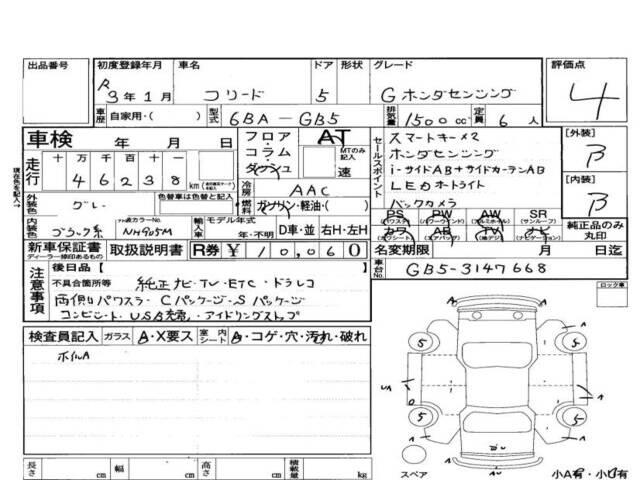 出品番号 初度登録年月 車名 ドア 形状 グレード 評価点
R3年1月 フリード 5 Gホンダセンシング 4
車歴 自家用・( ) 型式 6BA-GB5 排気量 1500cc 定員 6人
車検 年 月 日 フロア・コラム・ダッシュ AT セールスポイント スマートキー×2 [外装]
現在色を記入→ MTのみ記入 速 ホンダセンシング B
走行 十 万 千 百 十 i-サイドAB+サイドカーテンAB
4 6 2 3 8 km 冷房 AAC LEDオートライト [内装]
外装色 グレー 色替車は色替と記入 燃料 ガソリン・軽油・( ) バックカメラ B
内装色 ブラック系 カラーNo. NH905M 輸入車 モデル年式 年・不明 D車・並 右H・左H
PS (パワステ) PW (パワーウィンド) AW (アルミホイル) SR (サンルーフ)
カワ (皮シート) AB (エアバッグ) TV (地デジ) ナビ (ナビゲーション) 純正品のみ丸印
新車保証書 ディーラー捺印あるもの 取扱説明書 R券 ¥10,060 名変期限 月 日迄
注意事項 後日品【 車台No. GB5-3147668
不具合箇所等 純正ナビ・TV・ETC・ドラレコ ロック車
両側パワスラ・Cパッケージ・Sパッケージ
コンビシート・USB充電・アイドリングストップ
検査員記入 ガラス A・X要ス 室内シート A・コゲ・穴・汚れ・破れ
ホイルA
A
A
5 5
UA A
5 5
A
スペア 小A有・小U有
長さ cm 幅 cm 高さ cm 積載量 kg